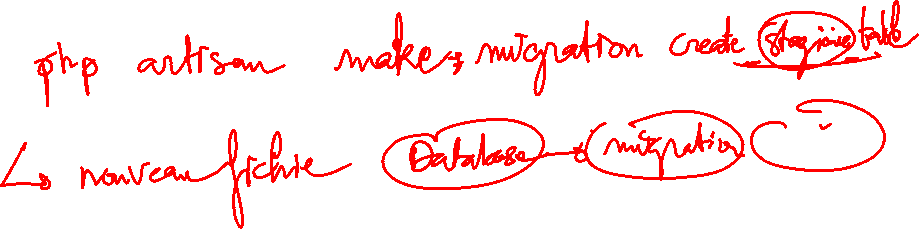 php artisan make:migration create_stagiaire_table
↳ nouveau fichie Database → migration